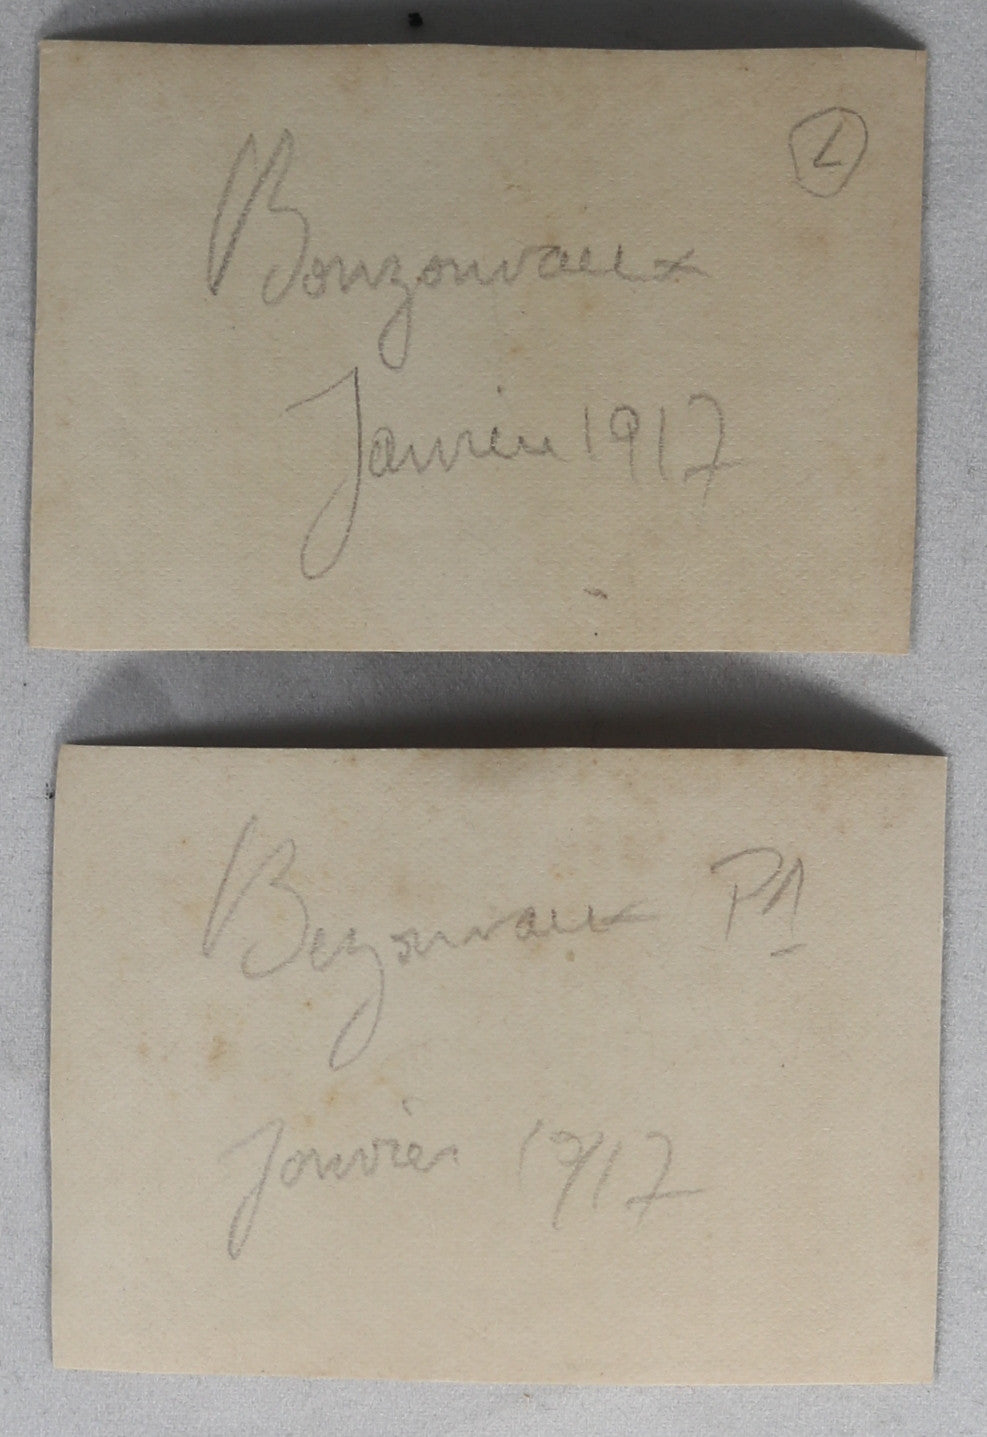 Bonzonvaux
Janvier 1917
Bezonvaux P1
Janvier 1917